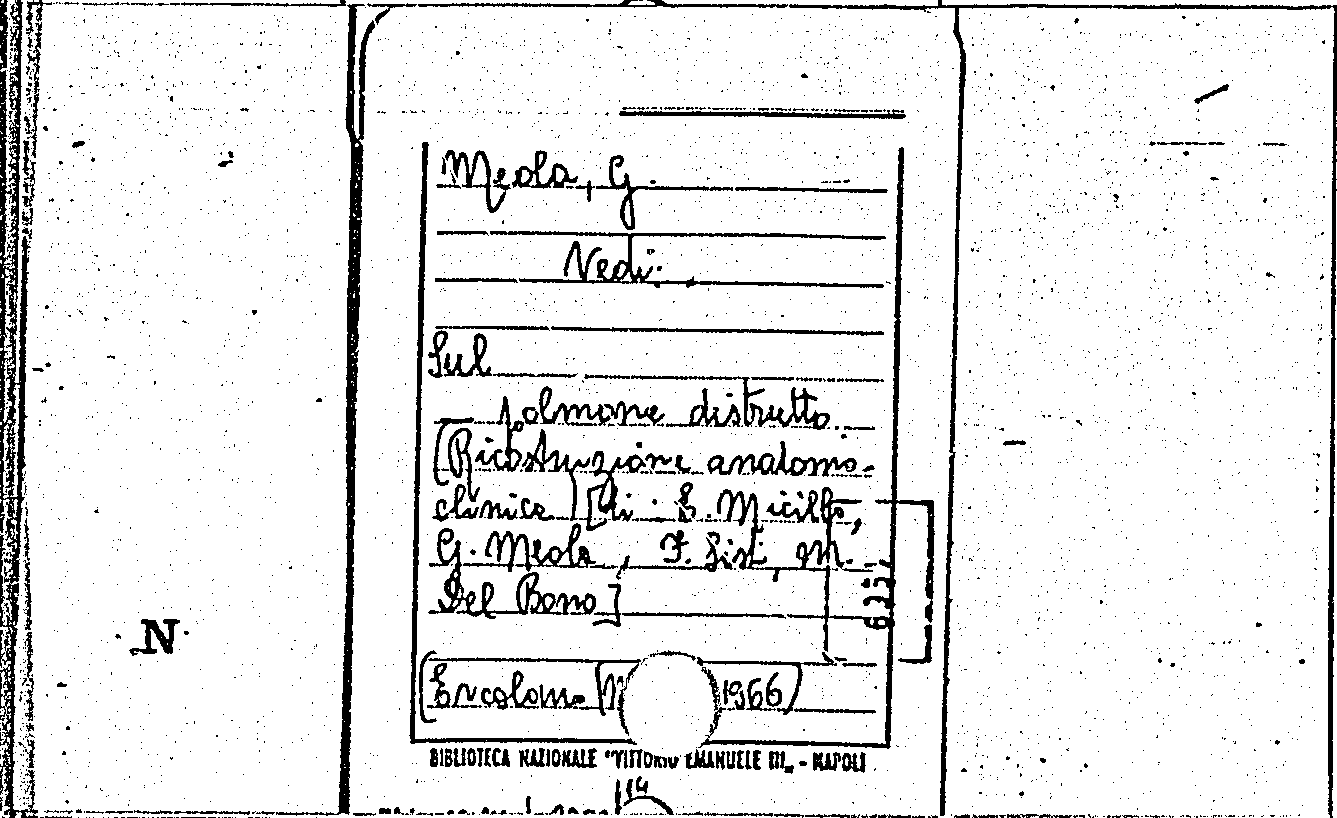 Meola, G.
Vedi:
Sul
polmone distrutto.
(Ricostruzione anatomo-
clinica) [di: E. Micillo,
G. Meola, F. Sisti, M.
Del Bono]
(Ercolano 1966)
BIBLIOTECA NAZIONALE "VITTORIO EMANUELE III" - NAPOLI
N